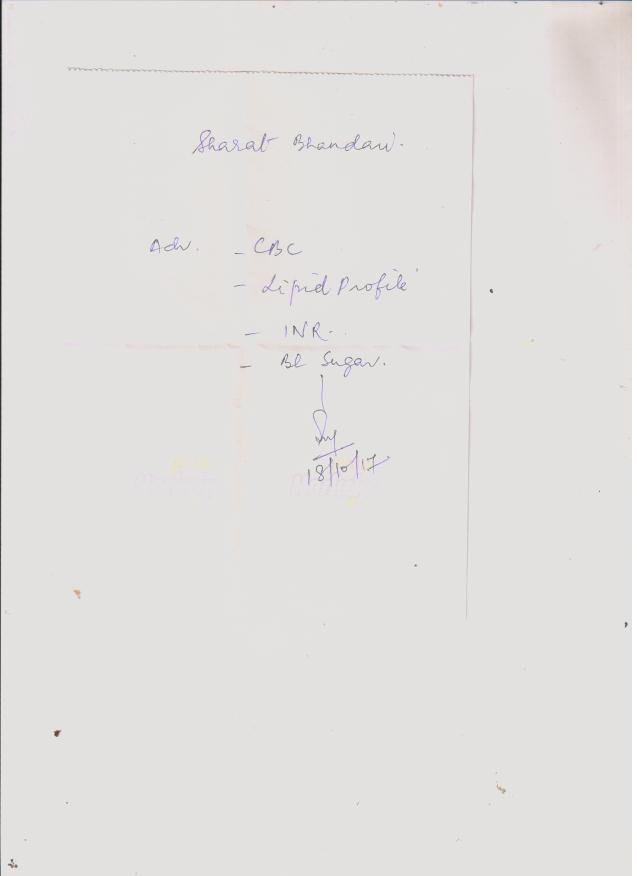 Sharat Bhandari.
Adv. - CBC
- Lipid Profile
- INR.
- Bl Sugar.
18/10/17